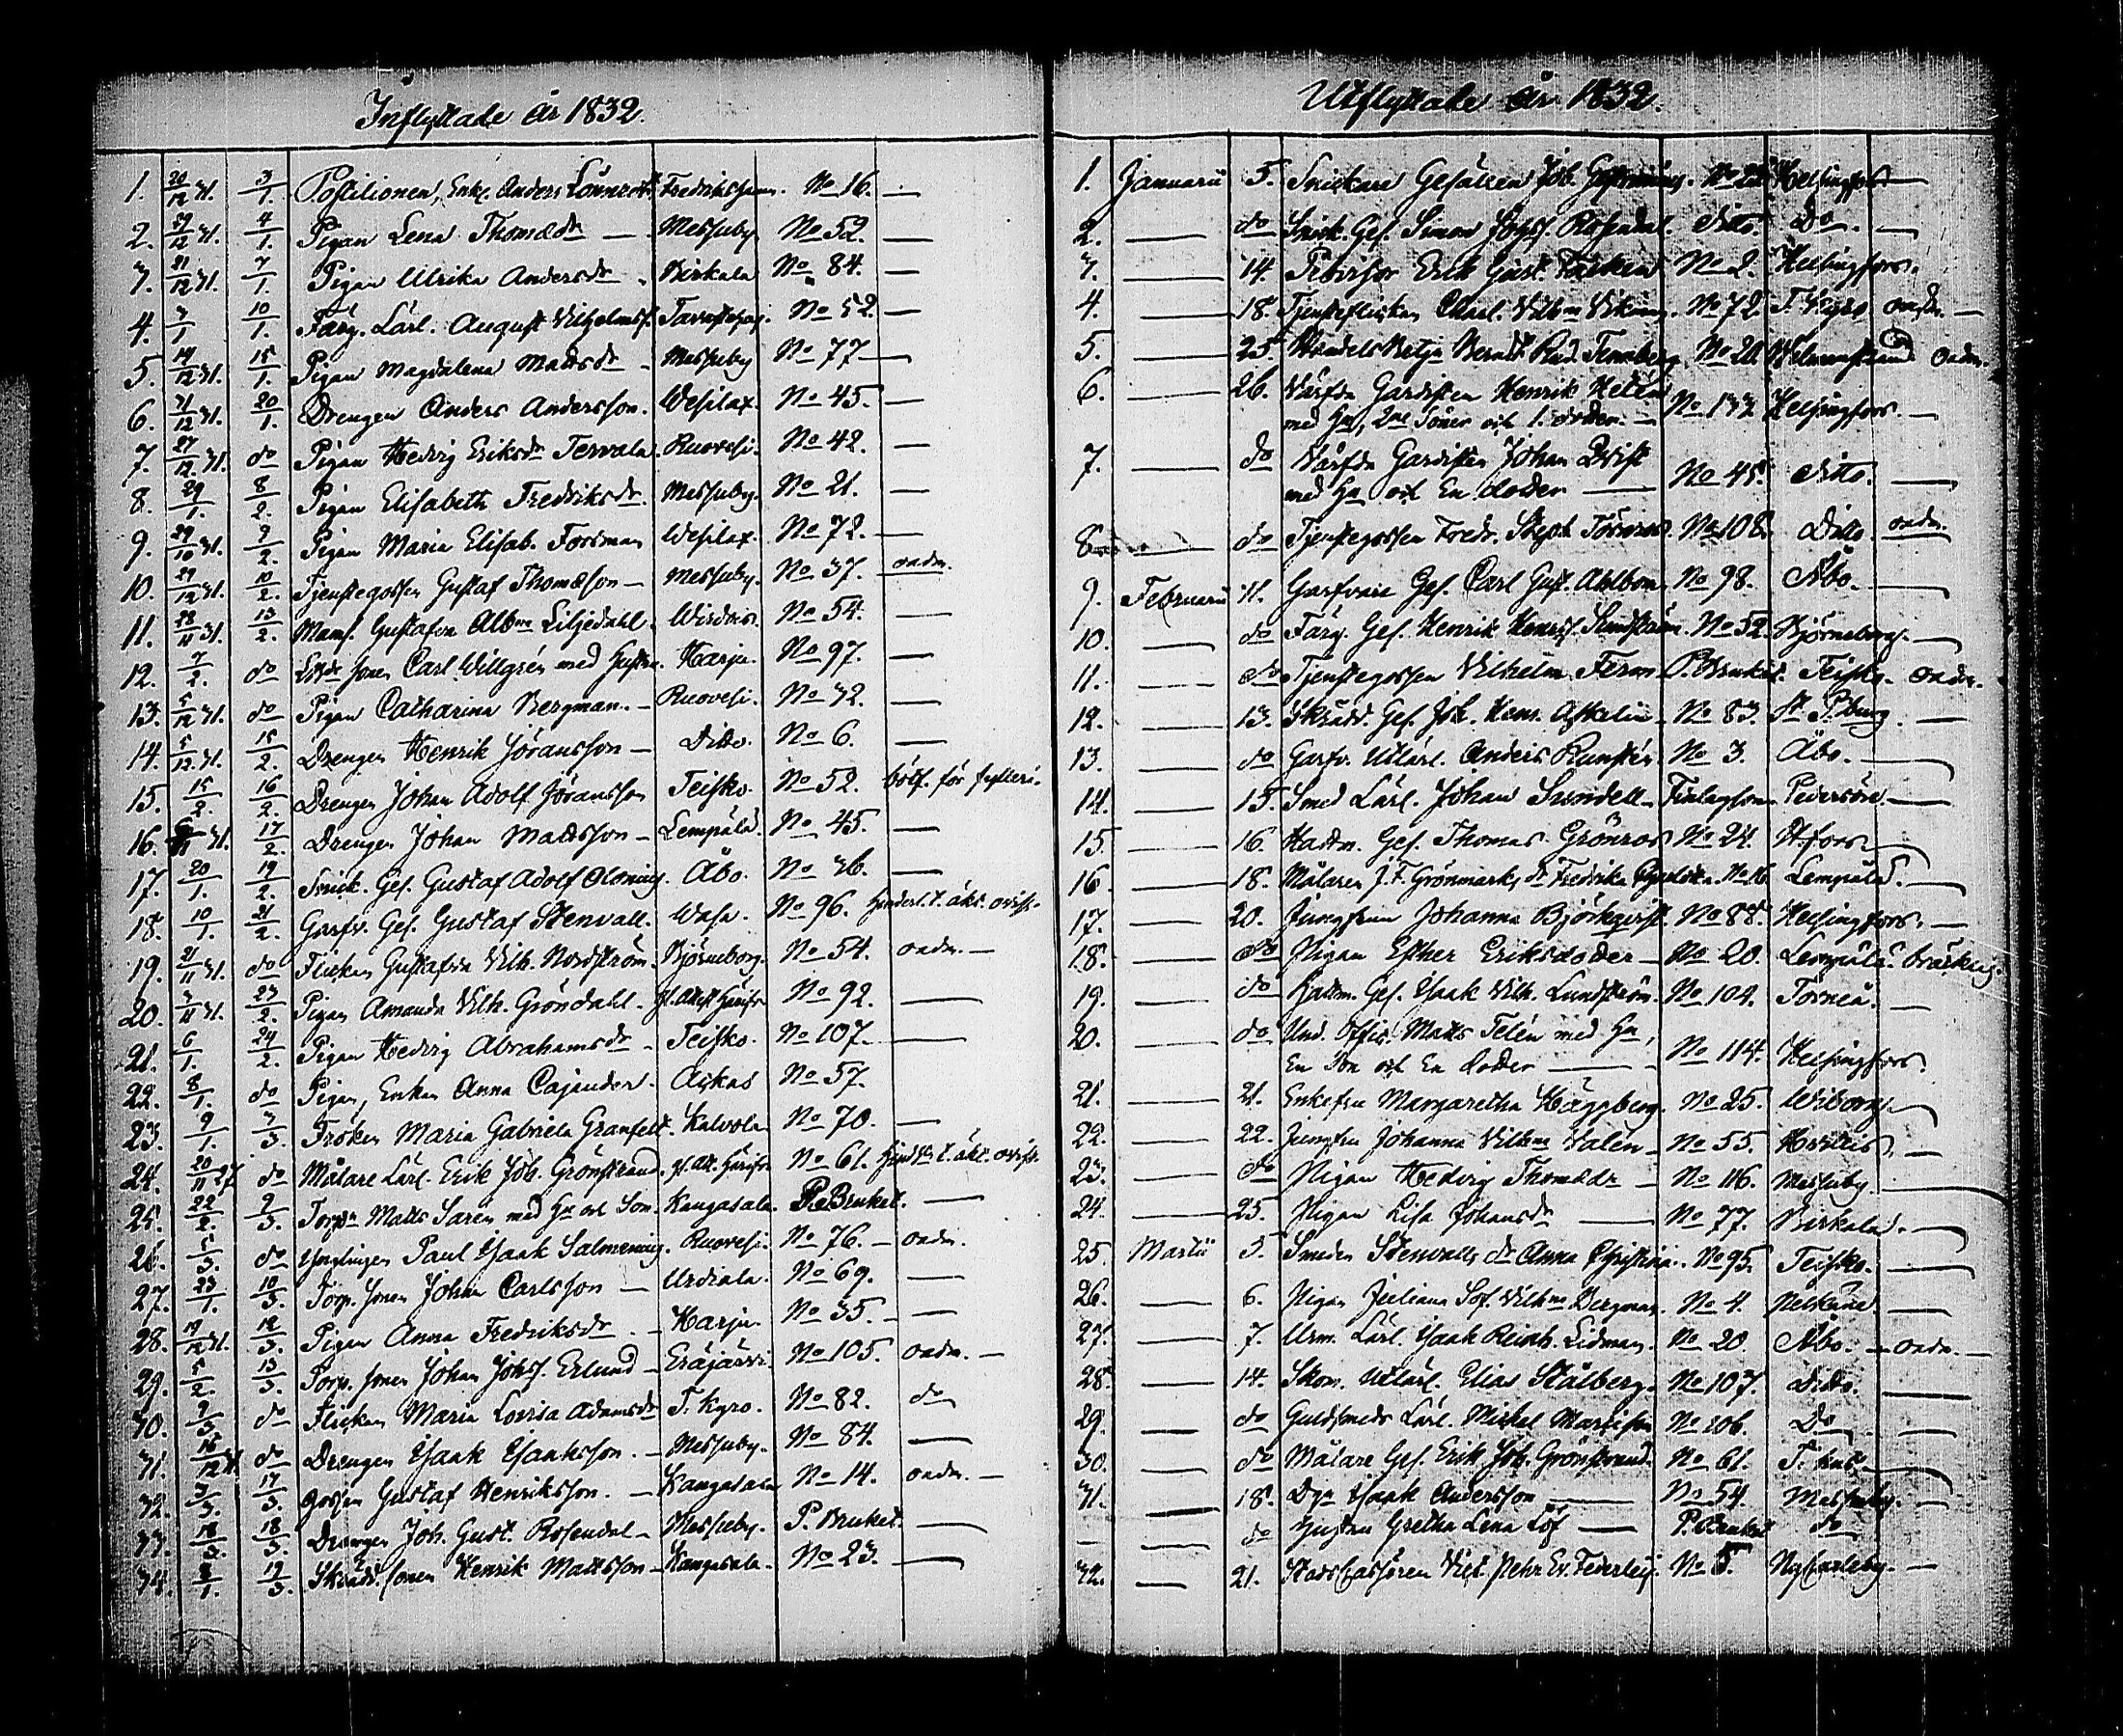 Inflyttade år 1832.
1. 20/12 31. 3/1. Postilionen, Enkl. Anders Lönnroth Fredrikshamn. No 16. —
2. 29/12 31. 4/1. Pigan Lena Thomædr — Messuby No 52. —
3. 31/12 31. 7/1. Pigan Ulrika Andersdr - Birkala No 84. —
4. 3/1 10/1. Färg. Lärl. August Vilhelmsf. Tavastehus. No 52. —
5. 14/12 31. 15/1. Pigan Magdalena Mattsdr - Messuby No 77 —
6. 31/12 31. 20/1. Drengen Anders Andersson. Wesilax. No 45. —
7. 27/12 31. do Pigan Hedvig Eriksdr Tervala. Ruovesi. No 42. —
8. 29/1. 8/2. Pigan Elisabeth Fredriksdr. Messuby. No 21. —
9. 29/10 31. 9/2. Pigan Maria Elisab. Forsman Wesilax. No 72. —
10. 29/12 31. 10/2. Tjenstegossen Gustaf Thomæson — Messuby. No 37. oadm.
11. 28/11 31. 13/2. Mams. Gustafva Albna Liljedahl. No 54. —
12. 7/2. do sonen Carl Willgrén med hustru. Harju. No 97. —
13. 5/12 31. do Pigan Catharina Bergman. — Ruovesi. No 32. —
14. 5/12. 31. 15/2. Drengen Henrik Jöransson — Ditto. No 6. —
15. 15/2. 16/2. Drengen Johan Adolf Jöransson Teisko. No 52. bötf. för fylleri.
16. 31. 17/2. Drengen Johan Mattsson — Lempäla. No 45. —
17. 20/1. 19/2. Snick. Ges. Gustaf Adolf Åbo. No 36. —
18. 10/1. 21/2. Garfv. Ges. Gustaf Stenvall. Wasa. No 96.
19. 21/11 31. do Flickan Gustafva Vilh. Nordström. Björneborg. No 54. oadm. —
20. 3/11 31. 23/2. Pigan Amanda Vilh. Gröndahl. No 92. —
21. 6/1. 24/2. Pigan Hedvig Abrahamsdr — Teisko. No 107. —
22. 8/1. do Pigan, Enkan Anna Cajander. Ackas No 57.
23. 9/1. 3/3. Fröken Maria Gabriela Granfelt. Kalvola No 70. —
24. 20/11 27 do Målare Lärl. Erik Joh. Grönstrand. No 61.
25. 22/2. 9/3. Torpn Matts Saren med Hu och Son. Kangasala. P. Bruket. —
26. 5/3. do Ynglingen Paul Isaak Salmening. Ruovesi. No 76. — oadm.
27. 23/1. 10/3. Torp. sonen Johan Carlsson — Urdiala. No 69. —
28. 19/12 31. 12/3. Pigan Anna Fredriksdr — Harju No 35. —
29. 5/2. 13/3. Torp. sonen Johan Johsf. Erlund — Eräjärvi. No 105. oadm. —
30. 9/3. do Flickan Maria Lovisa Adamsdr T. Kyro. No 82. do
31. 16/12 31 do Drengen Isaak Isaaksson. — Messuby. No 84. —
32. 3/3. 17/3. Gossen Gustaf Henriksson. — Kangasala No 14. oadm. —
33. 18/3. 18/3. Drengen Joh. Gust. Rosendal — Messuby. P. Bruket. —
34. 8/1. 19/3. Skrädd. sonen Henrik Mattsson — Kangasala. No 23. —
Utflyttade år 1832.
1. Januarii 5. Snickare Gesällen Joh. No 22. Helsingfors —
2. — do Snick. Ges. Simon Johsf. Rosendal. ditto. Do. —
3. — 14. Provisor Erik Gust. Falken No 2. Helsingfors.
4. — 18. Tjensteflickan Carol. Vilhna No 72. T. Kyro oadm. —
5. — 25 Handels Betjn Berndt Rud. Tennberg No 20. Wilmanstrand oadm.
6. — 26. Värfda Gardisten Henrik Helén
med Hu, 2ne Söner och 1. dotter. — No 133 Helsingfors. —
7. — do Värfda Gardisten Johan Qvist
med Hu och En dotter — No 45. ditto. —
8. — do Tjenstegossen Fredr. Steph. Törnroos. No 108. Ditto oadm.
9. Februarii 11. Garfvare Ges. Carl Gust. Ahlbom No 98. Åbo. —
10. — do Färg. Ges. Henrik Henrsf. Sundström. No 52. Björneborg. —
11. — do Tjenstegossen Vilhelm Ferm P. Bruket. Teisko. oadm.
12. — 13. Skrädd. Ges. Joh. Henr. Askelin No 83. St P.burg. —
13. — do Garfv. Utlärl. Anders Runstén No 3. Åbo. —
14. — 15. Smed Lärl. Johan Sundell — Finlayson. Pedersöre. —
15 — 16. Hattm. Ges. Thomas Grönros No 24. H.fors. —
16 — 18. Målaren J. F. Grönmarks dr Fredrika No 16 Lempälä. —
17. — 20. Jungfrun Johanna Björkqvist. No 88. Helsingfors. —
18. — do Pigan Esther Eriksdotter — No 20. Lempälä. bräcklig.
19. — do Hattm. Ges. Isaak Vilh. Lundström. No 104. Torneå. —
20. — do Und. Offic. Matts Telén med Hu,
En Son och En dotter — No 114. Helsingfors.
21. — 21. Enkefru Margaretha Häggberg. No 25. Wiborg. —
22. — 22. Jungfru Johanna Vilhna Valén — No 55. —
23. — do Pigan Hedvig Thomædr — No 116. Messuby. —
24. — 25. Pigan Lisa Johansdr — No 77. Birkala. —
25. Martii 5. Smeden Stenvalls dr Anna Christina. No 95. Teisko. —
26. — 6. Pigan Juliana Sof. Vilhna Bergman. No 4. Messuby —
27. — 7. Urm. Lärl. Isaak Reinh. Lidman. No 20. Åbo. — oadm. —
28. — 14. Skom. Utlärl. Elias Stålberg. No 107. Ditto. —
29. — do Guldsmeds Lärl. Mickel Martisen No 106. Do —
30. — do Målare Ges. Erik Joh. Grönstrand. No 61. T. hus. —
31. — 18. Dgn Isaak Andersson — No 54. Messuby. —
- — do Hustru Gretha Lena Löf — P. Bruket do
32. — 21. StadsCassören Vilh. Pehr Ev. Federley. No 5. NyCarleby. —